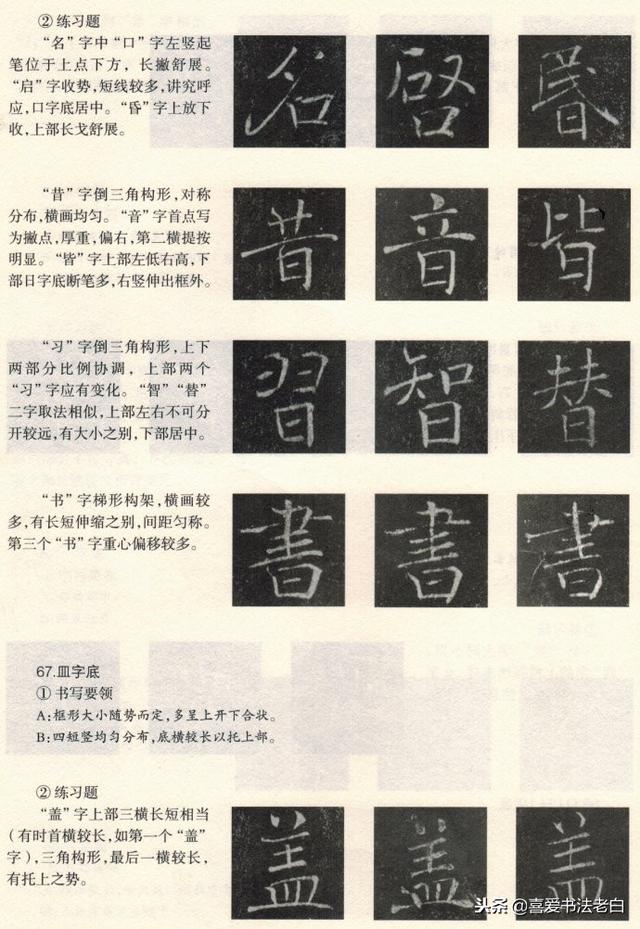 ② 练习题
“名”字中“口”字左竖起
笔位于上点下方，长撇舒展。
“启”字收势，短线较多，讲究呼
应，口字底居中。“昏”字上放下
收，上部长戈舒展。
名 啓 昬
“昔”字倒三角构形，对称
分布，横画均匀。“音”字首点写
为撇点，厚重，偏右，第二横提按
明显。“皆”字上部左低右高，下
部日字底断笔多，右竖伸出框外。
昔 音 皆
“习”字倒三角构形，上下
两部分比例协调，上部两个
“习”字应有变化。“智”“替”
二字取法相似，上部左右不可分
开较远，有大小之别，下部居中。
習 智 替
“书”字梯形构架，横画较
多，有长短伸缩之别，间距匀称。
第三个“书”字重心偏移较多。
書 書 書
67.皿字底
① 书写要领
A：框形大小随势而定，多呈上开下合状。
B：四短竖均匀分布，底横较长以托上部。
② 练习题
“盖”字上部三横长短相当
（有时首横较长，如第一个“盖”
字），三角构形，最后一横较长，
有托上之势。
盖 盖 盖
头条 @喜爱书法老白